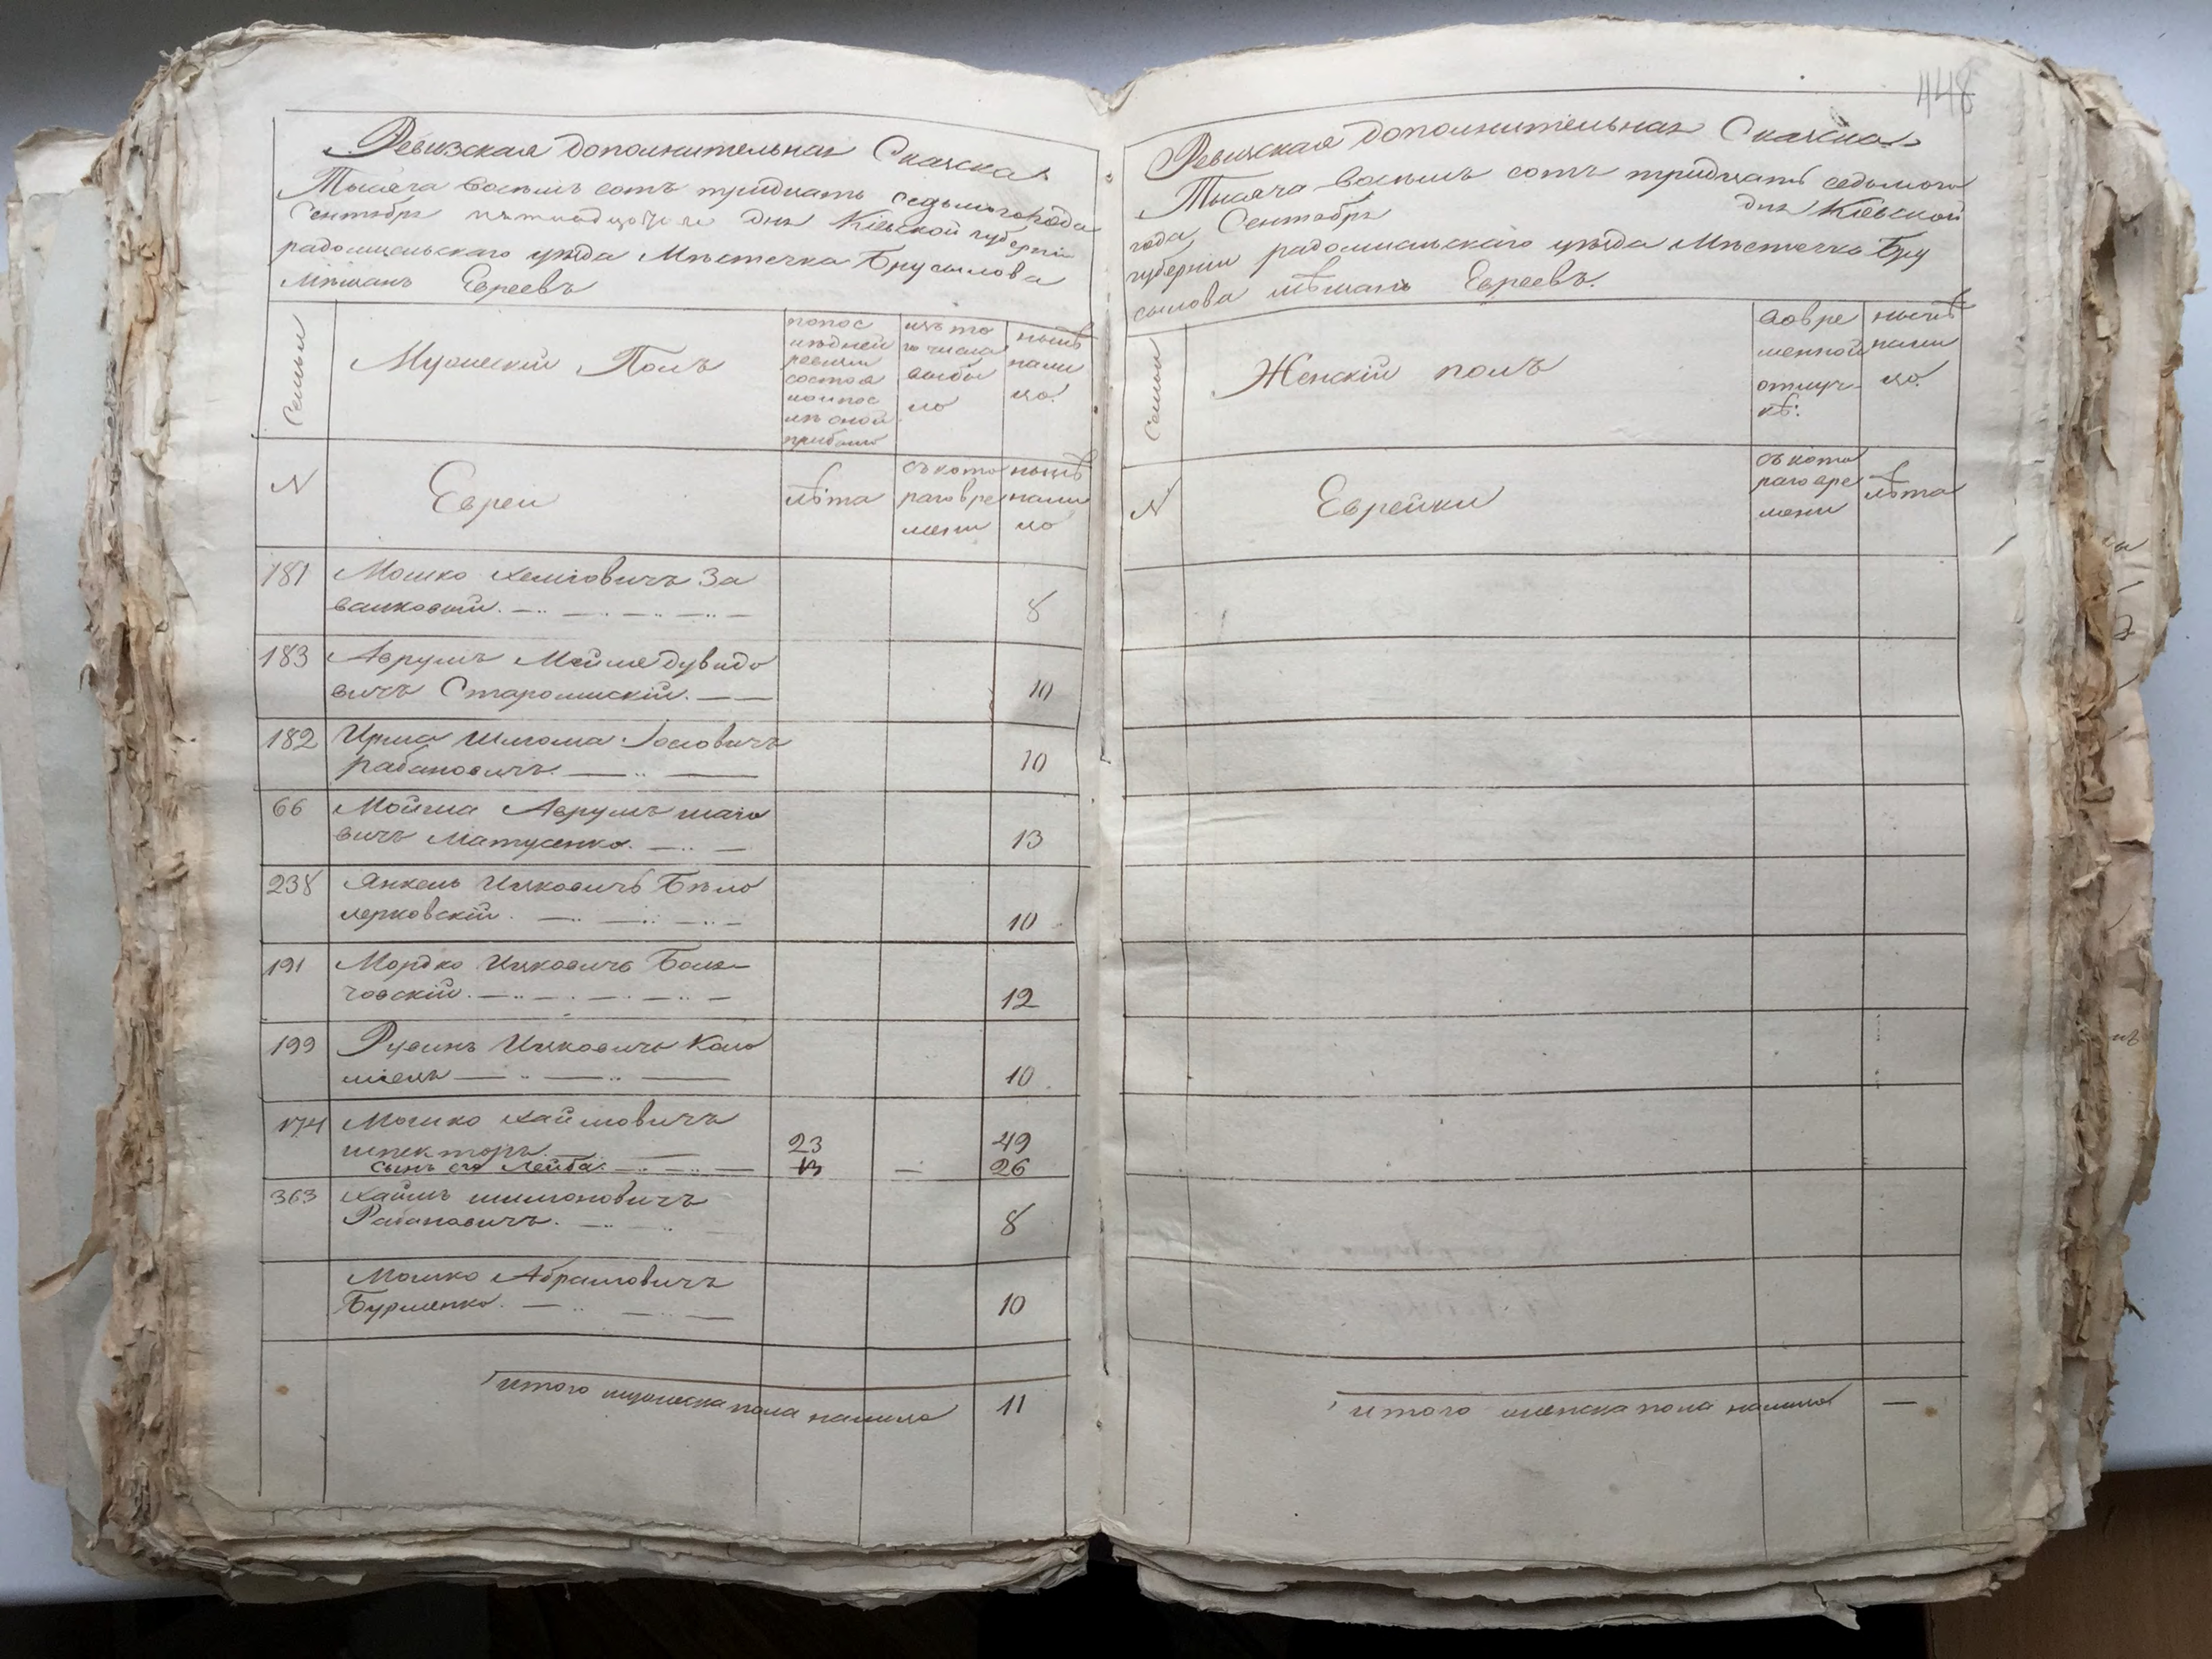 Ревизская дополнительная Сказка
Тысяча восемь сотъ тридцать седьмого года
Сентября пятнадцатого дня Кіевской губерніи
радомысльскаго уезда Местечка Брусилова
мещанъ Евреевъ
Семьи
Мужескій Полъ
попос
ледней
ревизіи
состоя
ло и пос
ле оной
прибыло
изъ то
го числа
выбы
ло
ныне
нали
цо
N
Евреи
лѣта
съ кото
раго вре
мени
нынѣ
нали
цо
181
Мошко Хемовичъ За
валковскій
8
183
Аврумъ Мойше дувидо
вичъ Старомискій
10
182
Ирша Шлиома Іосіовичъ
рабановичъ
10
66
Мойша Аврумъ
вичъ Матусенко
13
238
Янкель Ицковичъ Бѣло
церковскій
10
191
Мордко Ицковичъ
12
199
Рувинъ Ицковичъ Коло
міецъ
10
174
Мошко Хаймовичъ
шпекторъ
23
49
сынъ его Лейба
26
363
Хаимъ шимоновичъ
Рабановичъ
8
Мошко Абрамовичъ
Бурменко
10
итого мужеска пола налицо
11
448
Ревизская дополнительная Сказка
Тысяча восемь сотъ тридцать седьмого
года Сентября дня Кіевской
губерніи радомысльскаго уѣзда Местечка Бру
сылова мѣщанъ Евреевъ.
Семьи
Женскій полъ
во вре
менной
отлуч-
кѣ:
нынѣ
нали
цо
N
Еврейки
съ кото
раго вре
мени
лѣта
итого женска пола налицо
—